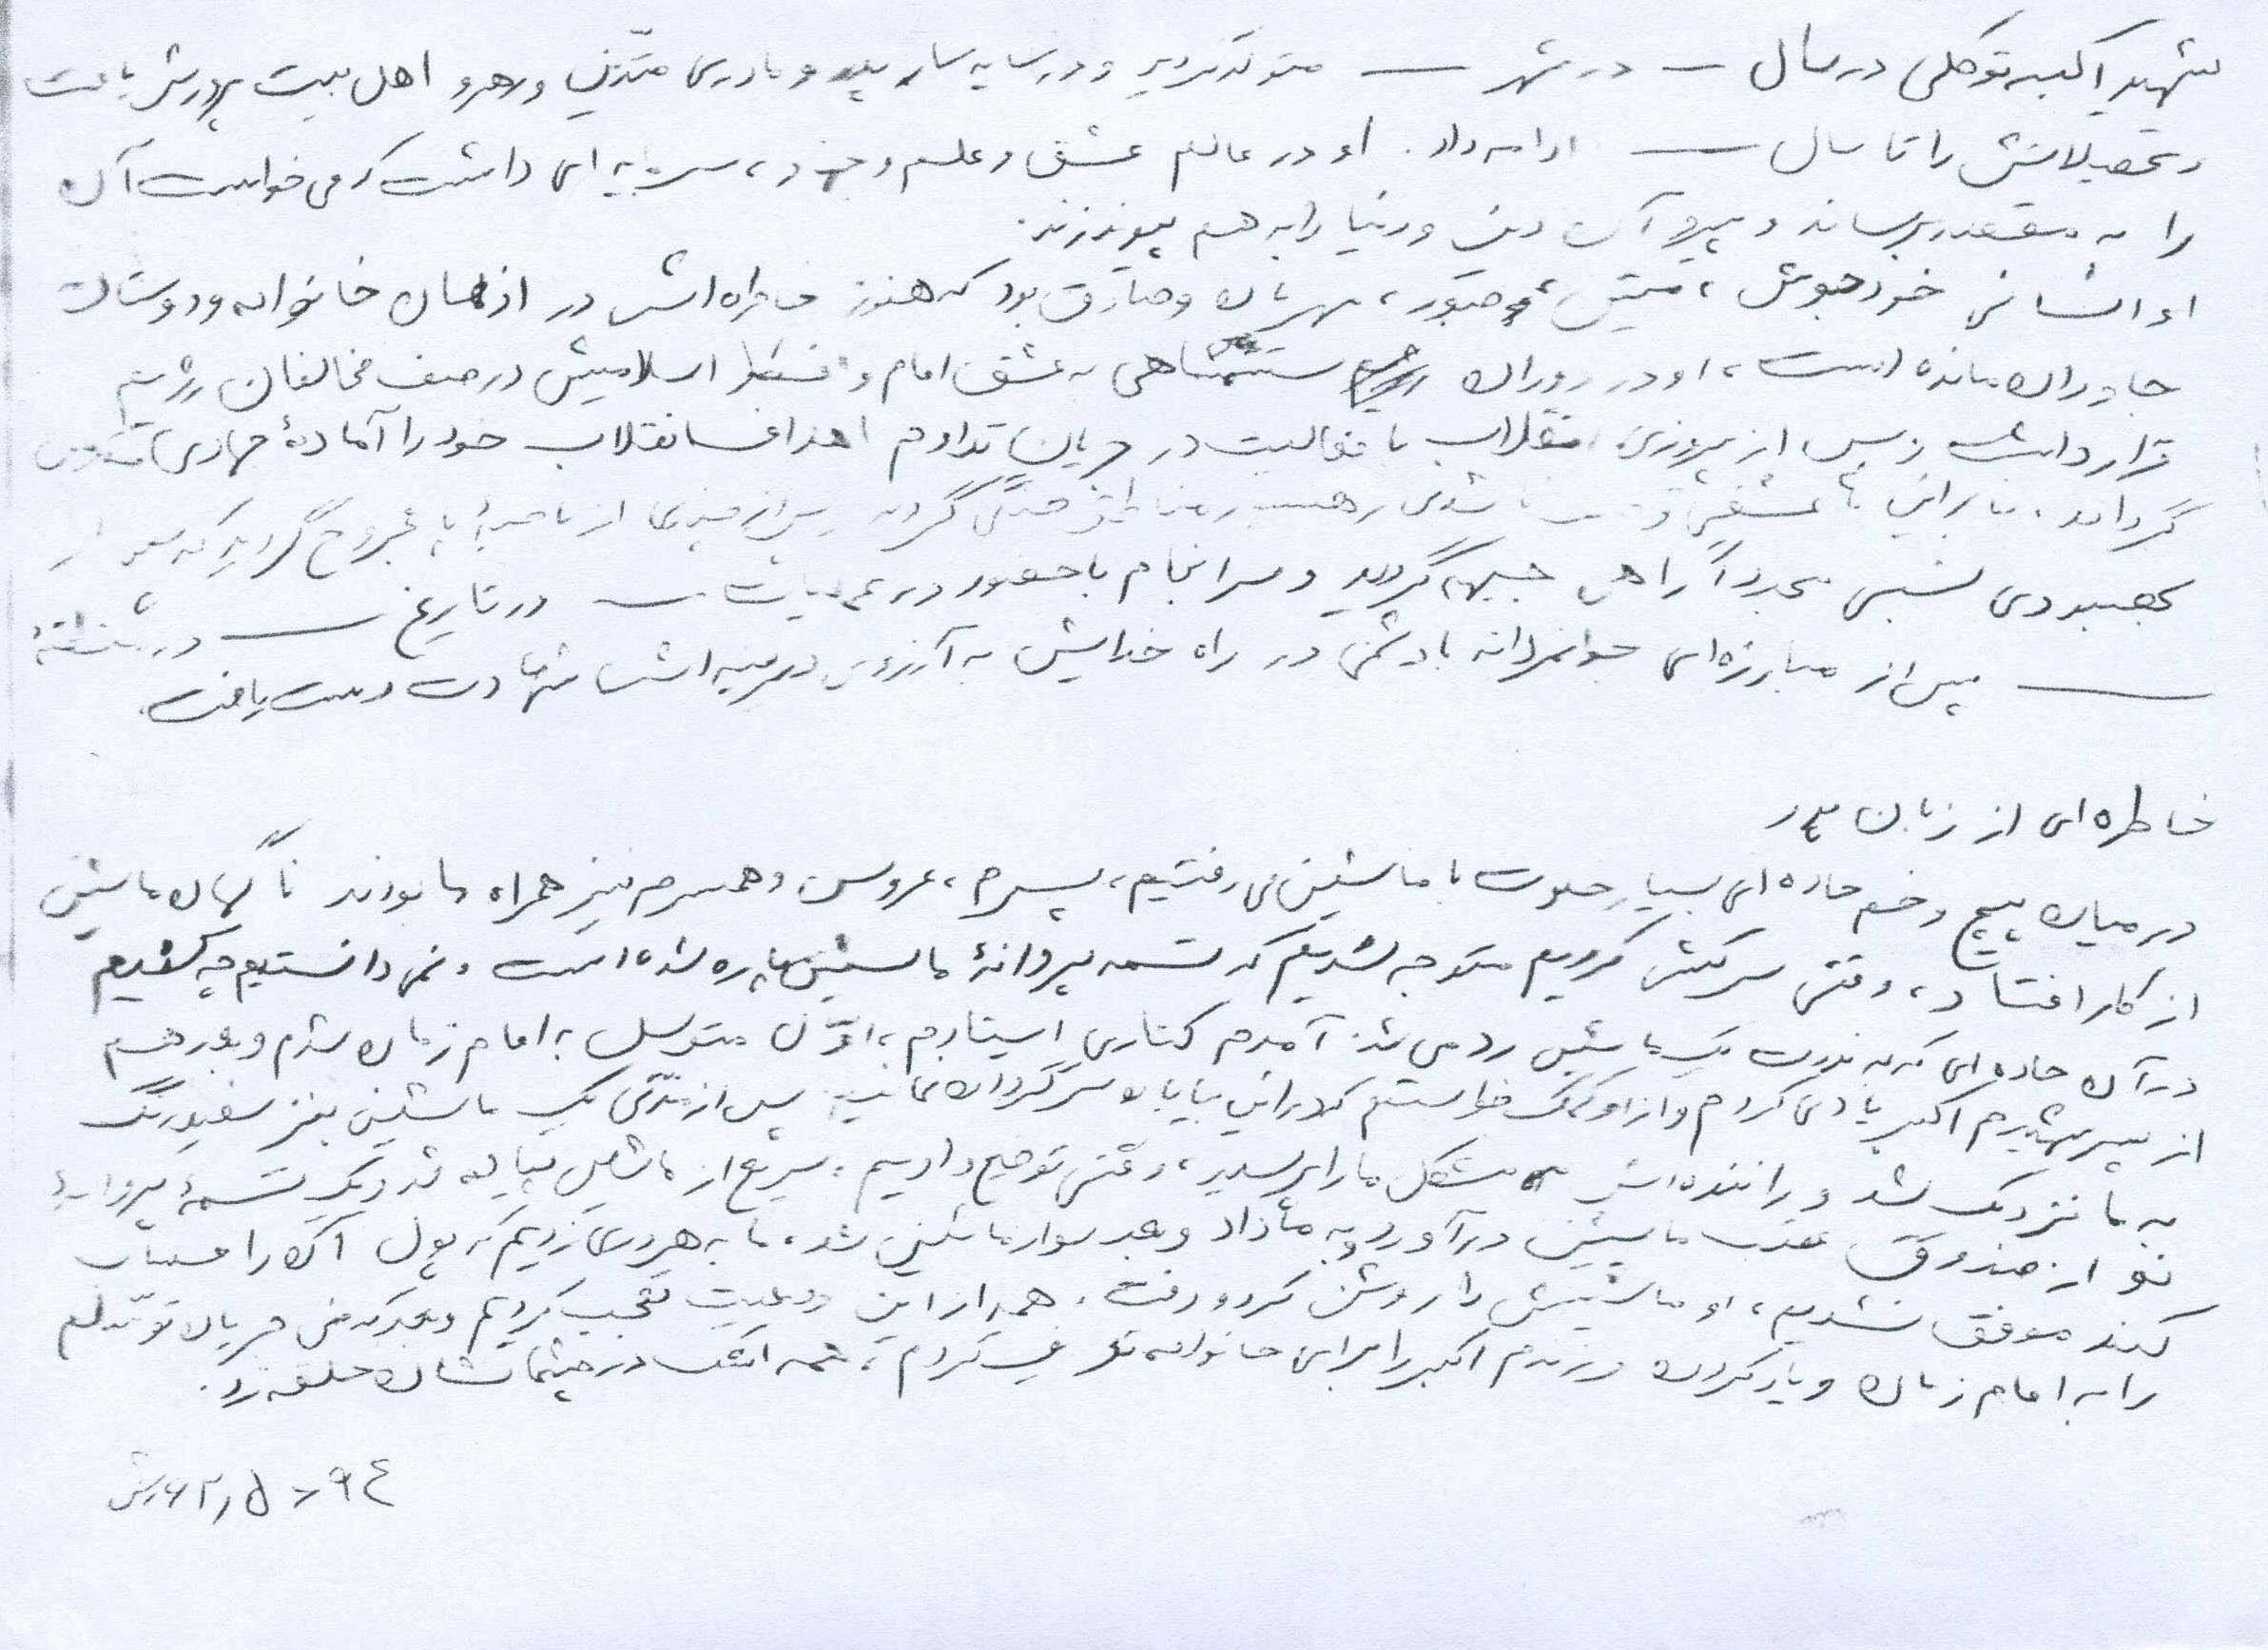 شهید اکبر توکلی در سال — در شهر — متولد گردید و در سایه سار پدر و مادری متدین و رهرو اهل بیت پرورش یافت
و تحصیلاتش را تا سال — ادامه داد. او در عالم عشق و علم وجود، سرمایه ای داشت که می خواست آن
را به مقصد برساند و پیرو آن دین و دنیا را به هم پیوند زند.
او انسانی خودجوش، متین، صبور، مهربان و صادق بود که هنوز خاطره اش در اذهان خانواده و دوستان
جاودان مانده است، او در دوران ستمشاهی به عشق امام و اسلامیش در صف مخالفان رژیم
قرار داشت و پس از پیروزی انقلاب با فعالیت در جریان تداوم اهداف انقلاب خود را آمادهٔ جهادی
گرداند. بنابراین با عشقی رهسپار مناطق جنگی گردید پس از چندی از ناحیهٔ پا مجروح گردید که پس از
بهبودی نسبی مجدداً راهی جبهه گردید و سرانجام با حضور در عملیات — در تاریخ — در منطقهٔ
— پس از مبارزه ای جوانمردانه با دشمن در راه خدایش به آرزوی دیرینه اش شهادت دست یافت.
خاطره ای از زبان پدر
در میان پیچ و خم جاده ای بسیار خلوت با ماشین می رفتیم، پسرم، عروس و همسرم نیز همراه ما بودند ناگهان ماشین
از کار افتاد، وقتی سرکشی کردیم متوجه شدیم که تسمه پروانهٔ ماشین پاره شده است و نمی دانستیم چه کنیم
در آن جاده ای که به ندرت یک ماشین رد می شد. آمدم کناری ایستادم، اوّل متوسل به امام زمان شدم و بعد هم
از پسر شهیدم اکبر یادی کردم و از او کمک خواستم که در این بیابان سرگردان نمانیم. پس از مدّتی یک ماشین بنز سفید رنگ
به ما نزدیک شد و راننده اش مشکل ما را پرسید، وقتی توضیح دادیم، سریع از ماشین پیاده شد و یک تسمهٔ پروانهٔ
نو از صندوق عقب ماشین درآورد و به ما داد و بعد سوار ماشین شد، ما به هر دری زدیم که پول آن را حساب
کند موفق نشدیم، او ماشینش را روشن کرد و رفت. همه از این وضعیت تعجب کردیم و بعد که من جریان توسّلم
را به امام زمان و یاد کردن فرزندم اکبر را برای خانواده تعریف کردم، همه اشک در چشمانشان حلقه زد.